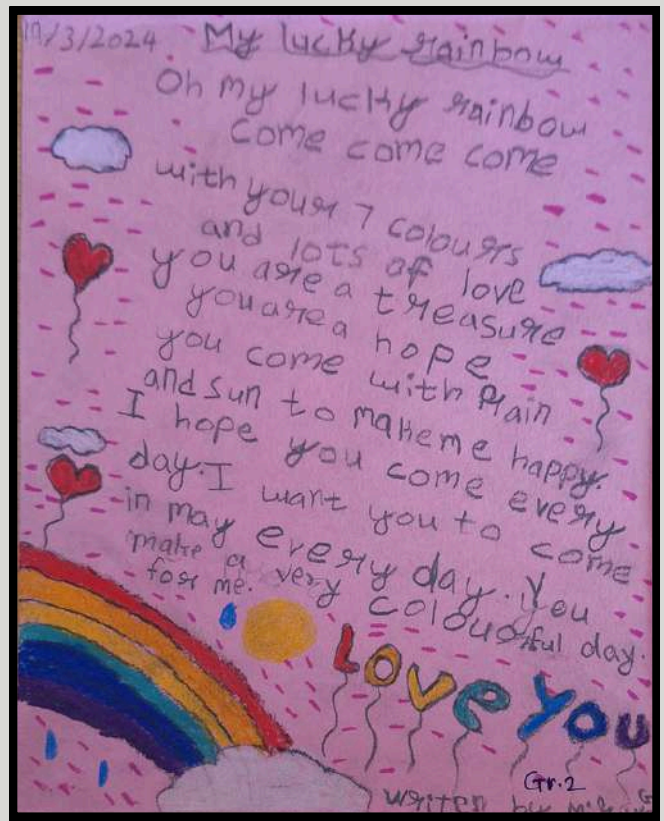 /3/2024 My lucky rainbow
Oh my lucky rainbow
Come come come
with your 7 colours
and lots of love
you are a treasure
you are a hope
you come with Rain
and sun to make me happy.
I hope you come every
day. I want you to come
in may every day. you
make a very colourful day.
for me.
Love you
Gr.2
writen by